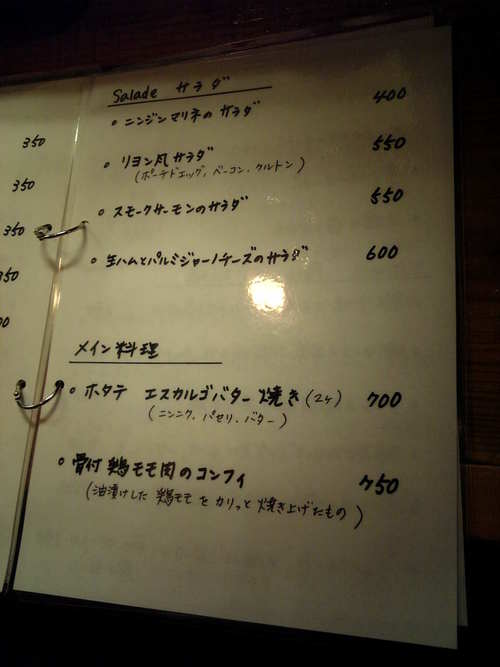 350
350
350
350
Salade サラダ
・ニンジンマリネのサラダ 400
・リヨン風サラダ 550
(ポーチドエッグ、ベーコン、クルトン)
・スモークサーモンのサラダ 550
・生ハムとパルミジャーノチーズのサラダ 600
メイン料理
・ホタテ エスカルゴバター焼き(2ヶ) 700
(ニンニク、パセリ、バター)
・骨付鶏モモ肉のコンフィ 750
(油漬けした鶏モモをカリっと焼き上げたもの)